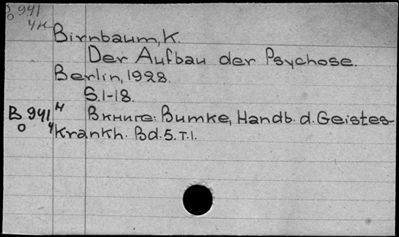 B 941
O 4н
Birnbaum, K.
Der Aufbau der Psychose.
Berlin, 1928.
S.1-18.
B 941 н Вкниге: Bumke, Handb. d. Geistes-
O 4 krankh. Bd.5.T.1.